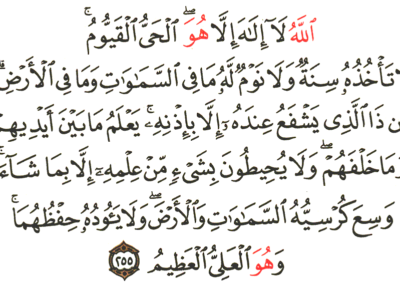 ٱللَّهُ لَآ إِلَٰهَ إِلَّا هُوَ ۖ ٱلْحَىُّ ٱلْقَيُّومُ ۚ
لَا تَأْخُذُهُۥ سِنَةٌ وَلَا نَوْمٌ ۚ لَّهُۥ مَا فِى ٱلسَّمَٰوَٰتِ وَمَا فِى ٱلْأَرْضِ ۗ
ذَا ٱلَّذِى يَشْفَعُ عِندَهُۥٓ إِلَّا بِإِذْنِهِۦ ۚ يَعْلَمُ مَا بَيْنَ أَيْدِيهِمْ
وَمَا خَلْفَهُمْ ۖ وَلَا يُحِيطُونَ بِشَىْءٍ مِّنْ عِلْمِهِۦٓ إِلَّا بِمَا شَآءَ ۚ
وَسِعَ كُرْسِيُّهُ ٱلسَّمَٰوَٰتِ وَٱلْأَرْضَ ۖ وَلَا يَـُٔودُهُۥ حِفْظُهُمَا ۚ
وَهُوَ ٱلْعَلِىُّ ٱلْعَظِيمُ ٢٥٥